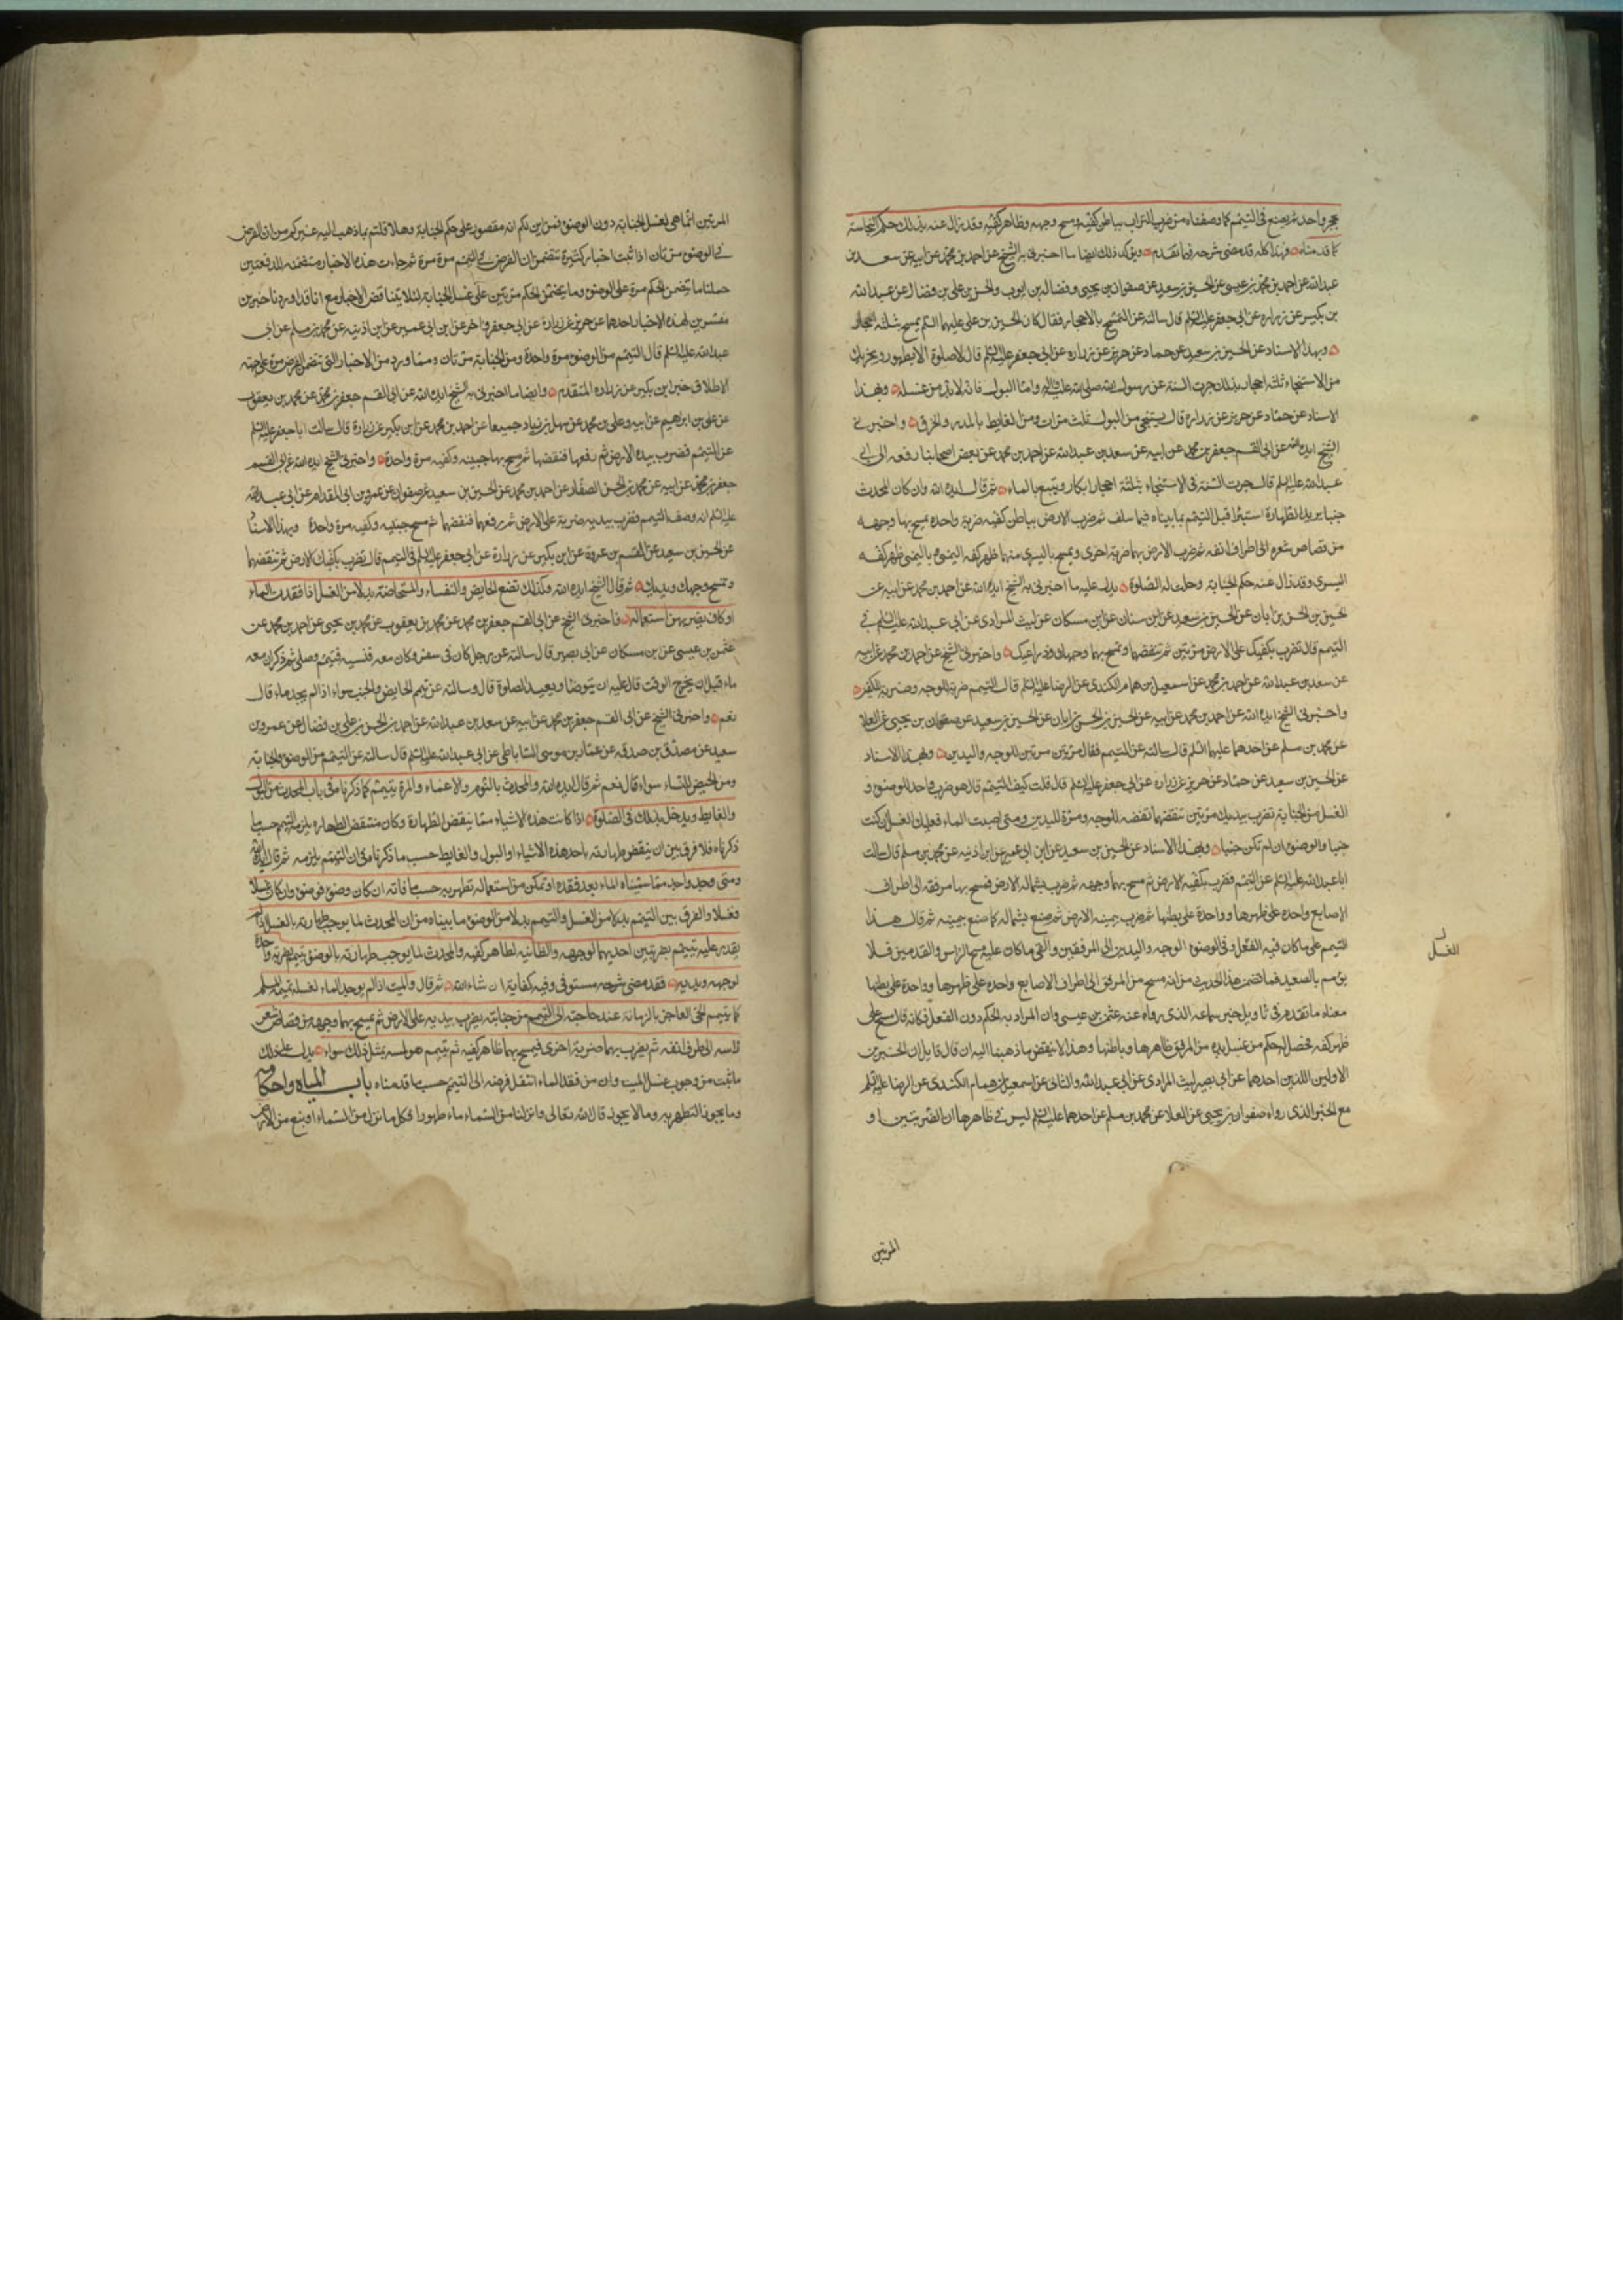 حجر واحد ثم يصنع في التيمم كما وصفناه من ضرب التراب بباطن كفيه ومسح وجهه وظاهر كفيه وقد زال عنه بذلك حكم النجاسة
كما قدمناه فهذا كله قد مضى شرحه فيما تقدم ويؤكد ذلك ايضا ما اخبرني به الشيخ عن احمد بن محمد عن ابيه عن سعد بن
عبد الله عن احمد بن محمد بن عيسى عن الحسين بن سعيد عن صفوان بن يحيى وفضالة بن ايوب والحسن بن علي بن فضال عن عبد الله
بن بكير عن زراره عن ابي جعفر عليه السلم قال سالته عن التمسح بالاحجار فقال كان الحسين بن علي عليهما السلم يمسح بثلثة احجار
وبهذا الاسناد عن الحسين بن سعيد عن حماد عن حريز عن زراره عن ابي جعفر عليه السلم قال لا صلوة الا بطهور ويجزيك
من الاستنجاء ثلثة احجار بذلك جرت السنة عن رسول الله صلى الله عليه واله واما البول فانه لا بد من غسله وبهذا
الاسناد عن حماد عن حريز عن زرارة قال يستنجي من البول ثلث مرات ومن الغايط بالمدر والخرق واخبرني
الشيخ ايده الله عن ابي القسم جعفر بن محمد عن ابيه عن سعد بن عبد الله عن احمد بن محمد عن بعض اصحابنا رفعه الى ابي
عبد الله عليه السلم قال جرت السنة في الاستنجاء بثلثة احجار ابكار ويتبع بالماء ثم قال ايده الله وان كان المحدث
جنبا يريد الطهارة استبرأ قبل التيمم بما بيناه فيما سلف ثم ضرب الارض بباطن كفيه ضربة واحدة يمسح بها وجهه
من قصاص شعره الى طرف انفه ثم ضرب الارض بهما ضربة اخرى ويمسح باليسرى منهما ظهر كفه اليمنى وباليمنى ظهر كفه
اليسرى وقد زال عنه حكم الجنابة وحلت له الصلوة يدل عليه ما اخبرني به الشيخ ايده الله عن احمد بن محمد عن ابيه عن
الحسين بن الحسن بن ابان عن الحسين بن سعيد عن ابن سنان عن ابن مسكان عن ليث المرادي عن ابي عبد الله عليه السلم في
التيمم قال تضرب بكفيك على الارض مرتين ثم تنفضهما وتمسح بهما وجهك وذراعيك واخبرني الشيخ عن احمد بن محمد عن ابيه
عن سعد بن عبد الله عن احمد بن محمد عن اسمعيل بن همام الكندي عن الرضا عليه السلم قال التيمم ضربة للوجه وضربة للكفين
واخبرني الشيخ ايده الله عن احمد بن محمد عن ابيه عن الحسين بن الحسن بن ابان عن الحسين بن سعيد عن صفوان بن يحيى عن العلا
عن محمد بن مسلم عن احدهما عليهما السلم قال سالته عن التيمم فقال مرتين مرتين للوجه واليدين وبهذا الاسناد
عن الحسين بن سعيد عن حماد عن حريز عن زراره عن ابي جعفر عليه السلم قال قلت كيف التيمم قال هو ضرب واحد للوضوء و
الغسل من الجنابة تضرب بيديك مرتين تنفضهما نفضة للوجه ومرة لليدين ومتى اصبت الماء فعليك الغسل ان كنت
جنبا والوضوء ان لم تكن جنبا وبهذا الاسناد عن الحسين بن سعيد عن ابن ابي عمير عن ابن اذينه عن محمد بن مسلم قال سالت
ابا عبد الله عليه السلم عن التيمم فضرب بكفيه الارض ثم مسح بهما وجهه ثم ضرب بشماله الارض فمسح بها مرفقه الى اطراف
الاصابع واحدة على ظهرها وواحدة على بطنها ثم ضرب بيمينه الارض ثم صنع بشماله كما صنع بيمينه ثم قال هذا
التيمم على ما كان فيه الغسل وفي الوضوء الوجه واليدين الى المرفقين والقى ما كان عليه مسح الراس والقدمين فلا
يؤمم بالصعيد فما تضمن هذا الحديث من انه مسح من المرفق الى اطراف الاصابع واحدة على ظهرها وواحدة على بطنها
معناه ما تقدم في تاويل خبر سماعه الذي رواه عنه عثمن بن عيسى وان المراد به الحكم دون الفعل فكانه قال مسح على
ظهر كفه فحصل له حكم من غسل يده من المرفق ظاهرها وباطنها وهذا لا ينقض ما ذهبنا اليه ان قال قايل ان الخبرين
الاولين اللذين احدهما عن ابي بصير ليث المرادي عن ابي عبد الله والثاني عن اسمعيل بن همام الكندي عن الرضا عليه السلم
مع الخبر الذي رواه صفوان بن يحيى عن العلا عن محمد بن مسلم عن احدهما عليه السلم ليس في ظاهرها ان الضربتين او
الغسل
المرتين
المرتين انما هي لغسل الجنابة دون الوضوء فمن اين لكم انه مقصور على حكم الجنابة وهلا قلتم بما ذهب اليه غيركم من ان الفرض
في الوضوء مرتان اذا ثبت اخبار كثيرة تتضمن ان الفرض في التيمم مرة مرة ثم جاءت هذه الاخبار متضمنة للدفعتين
حملنا ما يتضمن الحكم مرة على الوضوء وما يتضمن الحكم مرتين على غسل الجنابة لئلا يتناقض الاخبار مع انا قد اوردنا خبرين
مفسرين لهذه الاخبار احدهما عن حريز عن زرارة عن ابي جعفر والاخر عن ابن ابي عمير عن ابن اذينه عن محمد بن مسلم عن ابي
عبد الله عليه السلم قال التيمم من الوضوء مرة واحدة ومن الجنابة مرتان ومما ورد من الاخبار التي تتضمن الفرض مرة على جهة
الاطلاق خبر ابن بكير عن زراره المتقدم وايضا ما اخبرني به الشيخ ايده الله عن ابي القسم جعفر بن محمد عن محمد بن يعقوب
عن علي بن ابراهيم عن ابيه وعلي بن محمد عن سهل بن زياد جميعا عن احمد بن محمد عن ابن بكير عن زرارة قال سالت ابا جعفر عليه السلم
عن التيمم فضرب بيده الارض ثم رفعها فنفضها ثم مسح بها جبينه وكفيه مرة واحدة واخبرني الشيخ ايده الله عن ابي القسم
جعفر بن محمد عن ابيه عن محمد بن الحسن الصفار عن احمد بن محمد عن الحسين بن سعيد عن صفوان عن عمرو بن ابي المقدام عن ابي عبد الله
عليه السلم انه وصف التيمم فضرب بيديه ضربة على الارض ثم رفعهما فنفضهما ثم مسح جبينيه وكفيه مرة واحدة وبهذا الاسناد
عن الحسين بن سعيد عن القسم بن عروة عن ابن بكير عن زرارة عن ابي جعفر عليه السلم في التيمم قال تضرب بكفيك الارض ثم تنفضهما
وتمسح وجهك ويديك ثم قال الشيخ ايده الله وكذلك تصنع الحايض والنفساء والمستحاضة بدلا من الغسل اذا فقدت الماء
او كان يضر بهن استعماله فاخبرني الشيخ عن ابي القسم جعفر بن محمد عن محمد بن يعقوب عن محمد بن يحيى عن احمد بن محمد عن
عثمن بن عيسى عن ابن مسكان عن ابي بصير قال سالته عن رجل كان في سفر وكان معه فنسيه فتيمم وصلى ثم ذكر ان معه
ماء قبل ان يخرج الوقت قال عليه ان يتوضا ويعيد الصلوة قال وسالته عن تيمم الحايض والجنب سواء اذا لم يجد ماء قال
نعم واخبرني الشيخ عن ابي القسم جعفر بن محمد عن ابيه عن سعد بن عبد الله عن احمد بن الحسن بن علي بن فضال عن عمرو بن
سعيد عن مصدق بن صدقه عن عمار بن موسى الساباطي عن ابي عبد الله عليه السلم قال سالته عن التيمم من الوضوء والجنابة
ومن الحيض للنساء سواء قال نعم ثم قال ايده الله والمحدث بالنوم والاغماء والمرة يتيمم كما ذكرناه في باب المحدث من البول
والغايط ويدخل بذلك في الصلوة اذا كانت هذه الاشياء مما ينقض الطهارة وكان منتقض الطهاره يلزمه التيمم حسب ما
ذكرناه فلا فرق بين ان ينقض طهارته باحد هذه الاشياء او البول والغايط حسب ما ذكرناه في ان التيمم يلزمه ثم قال ايده الله
ومتى وجد واحد ممن سميناه الماء بعد فقده او تمكن من استعماله تطهر به حسب ما فاته ان كان وضوء فوضوء وان كان غسلا
فغسلا والفرق بين التيمم بدلا من الغسل والتيمم بدلا من الوضوء ما بيناه من ان المحدث لما يوجب طهارته بالغسل اذا لم
يقدر عليه يتيمم بضربتين احديهما لوجهه والثانيه لظاهر كفيه والمحدث لما يوجب طهارته بالوضوء يتيمم بضربة واحدة
لوجهه ويديه فقد مضى شرحه مستوفى وفيه كفاية ان شاء الله ثم قال والميت اذا لم يوجد الماء لغسله يممه المسلم
كما يتيمم الحي العاجز بالزمانة عند حاجته الى التيمم من جنابته يضرب بيديه على الارض ثم يمسح بهما وجهه من قصاص شعر
راسه الى طرف انفه ثم يضرب بهما ضربة اخرى فيمسح بهما ظاهر كفيه ثم يتيمم هو لمسه بمثل ذلك سواء يدل على ذلك
ما ثبت من وجوب غسل الميت وان من فقد الماء انتقل فرضه الى التيمم حسب ما قدمناه باب المياه واحكامها
وما يجوز التطهر به وما لا يجوز قال الله تعالى وانزلنا من السماء ماء طهورا فكل ما نزل من السماء او نبع من الارض